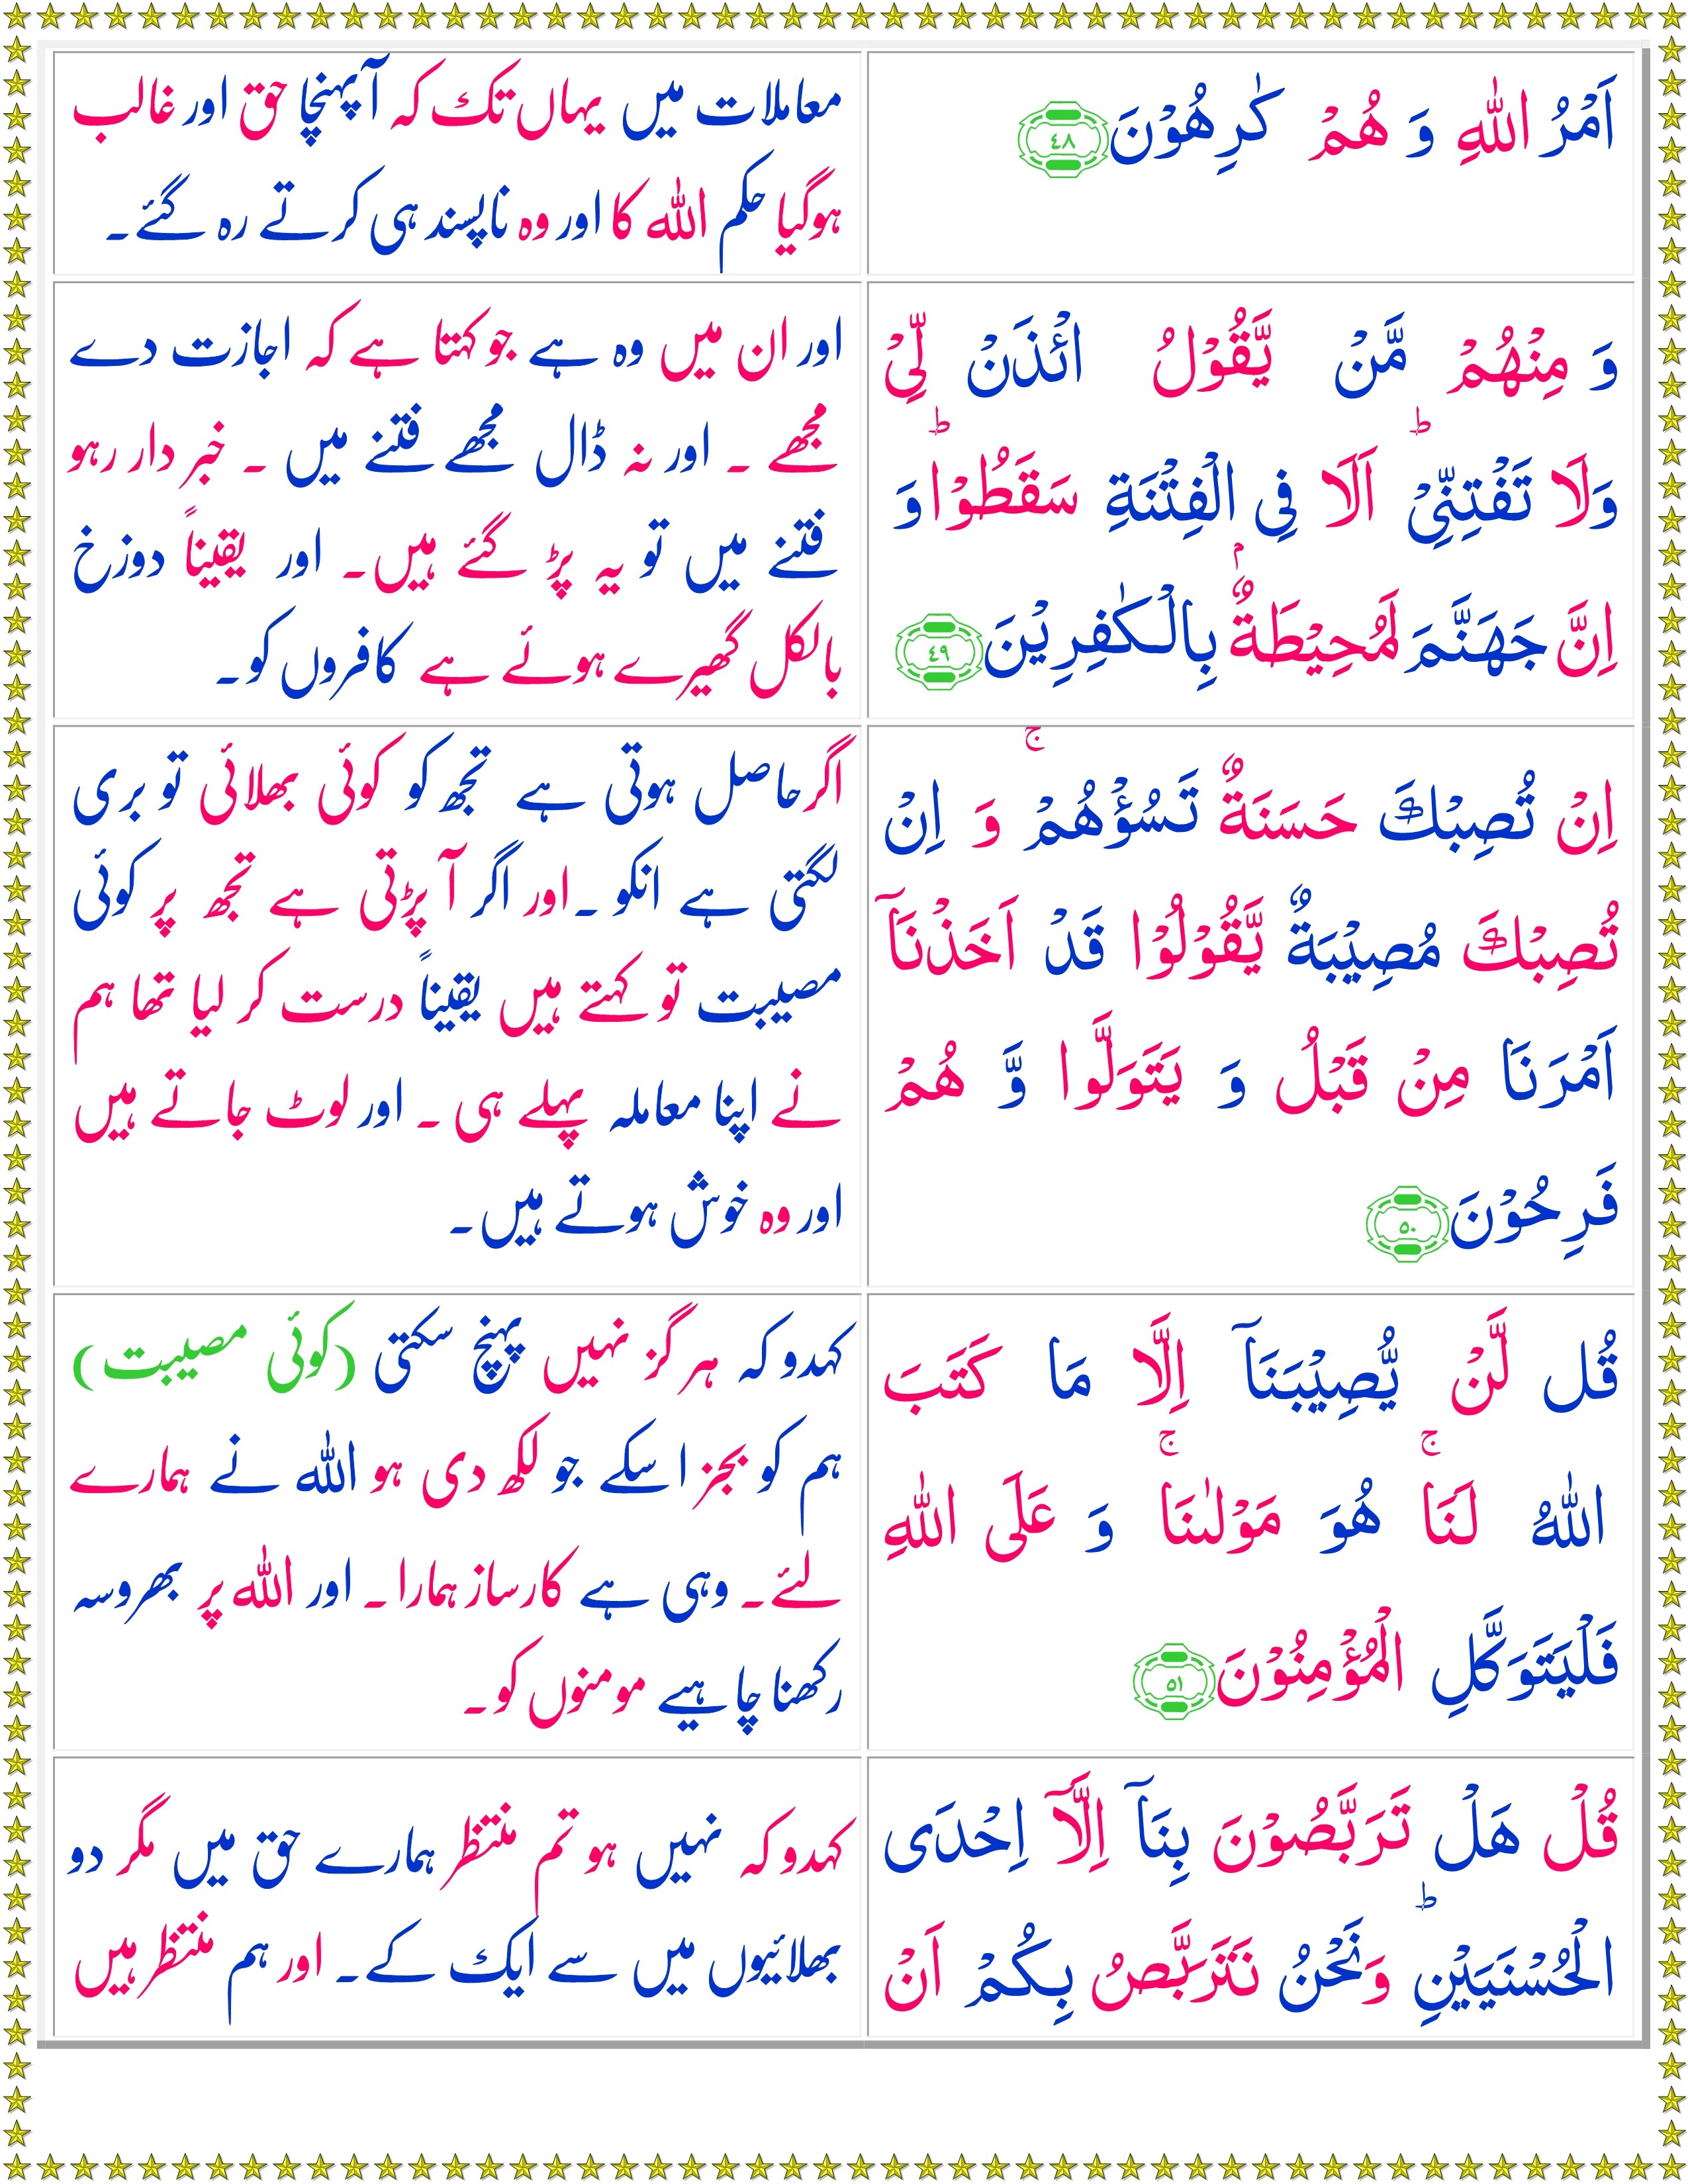 اَمْرُ اللّٰهِ وَ هُمْ كٰرِهُوْنَ ﴿٤٨﴾
معاملات میں یہاں تک کہ آپہنچا حق اور غالب
ہوگیا حکم اللہ کا اور وہ ناپسند ہی کرتے رہ گئے۔
وَ مِنْهُمْ مَّنْ يَّقُوْلُ ائْذَنْ لِّيْ
وَلَا تَفْتِنِّيْ ؕ اَلَا فِي الْفِتْنَةِ سَقَطُوْا ؕ وَ
اِنَّ جَهَنَّمَ لَمُحِيْطَةٌۢ بِالْكٰفِرِيْنَ ﴿٤٩﴾
اور ان میں وہ ہے جو کہتا ہے کہ اجازت دے
مجھے ۔ اور نہ ڈال مجھے فتنے میں ۔ خبر دار رہو
فتنے میں تو یہ پڑ گئے ہیں۔ اور یقیناً دوزخ
بالکل گھیرے ہوئے ہے کافروں کو۔
اِنْ تُصِبْكَ حَسَنَةٌ تَسُؤْهُمْ ۚ وَ اِنْ
تُصِبْكَ مُصِيْبَةٌ يَّقُوْلُوْا قَدْ اَخَذْنَاۤ
اَمْرَنَا مِنْ قَبْلُ وَ يَتَوَلَّوا وَّ هُمْ
فَرِحُوْنَ ﴿٥٠﴾
اگر حاصل ہوتی ہے تجھ کو کوئی بھلائی تو بری
لگتی ہے انکو ۔ اور اگر آ پڑتی ہے تجھ پر کوئی
مصیبت تو کہتے ہیں یقیناً درست کر لیا تھا ہم
نے اپنا معاملہ پہلے ہی ۔ اور لوٹ جاتے ہیں
اور وہ خوش ہوتے ہیں۔
قُل لَّنْ يُّصِيْبَنَاۤ اِلَّا مَا كَتَبَ
اللّٰهُ لَنَا ۚ هُوَ مَوْلٰىنَا ۚ وَ عَلَى اللّٰهِ
فَلْيَتَوَكَّلِ الْمُؤْمِنُوْنَ ﴿٥١﴾
کہدو کہ ہر گز نہیں پہنچ سکتی (کوئی مصیبت)
ہم کو بجز اسکے جو لکھ دی ہو اللہ نے ہمارے
لئے۔ وہی ہے کارساز ہمارا۔ اور اللہ پر بھروسہ
رکھنا چاہیے مومنوں کو۔
قُلْ هَلْ تَرَبَّصُوْنَ بِنَاۤ اِلَّاۤ اِحْدَى
الْحُسْنَيَيْنِ ؕ وَنَحْنُ نَتَرَبَّصُ بِكُمْ اَنْ
کہدو کہ نہیں ہو تم منتظر ہمارے حق میں مگر دو
بھلائیوں میں سے ایک کے۔ اور ہم منتظر ہیں